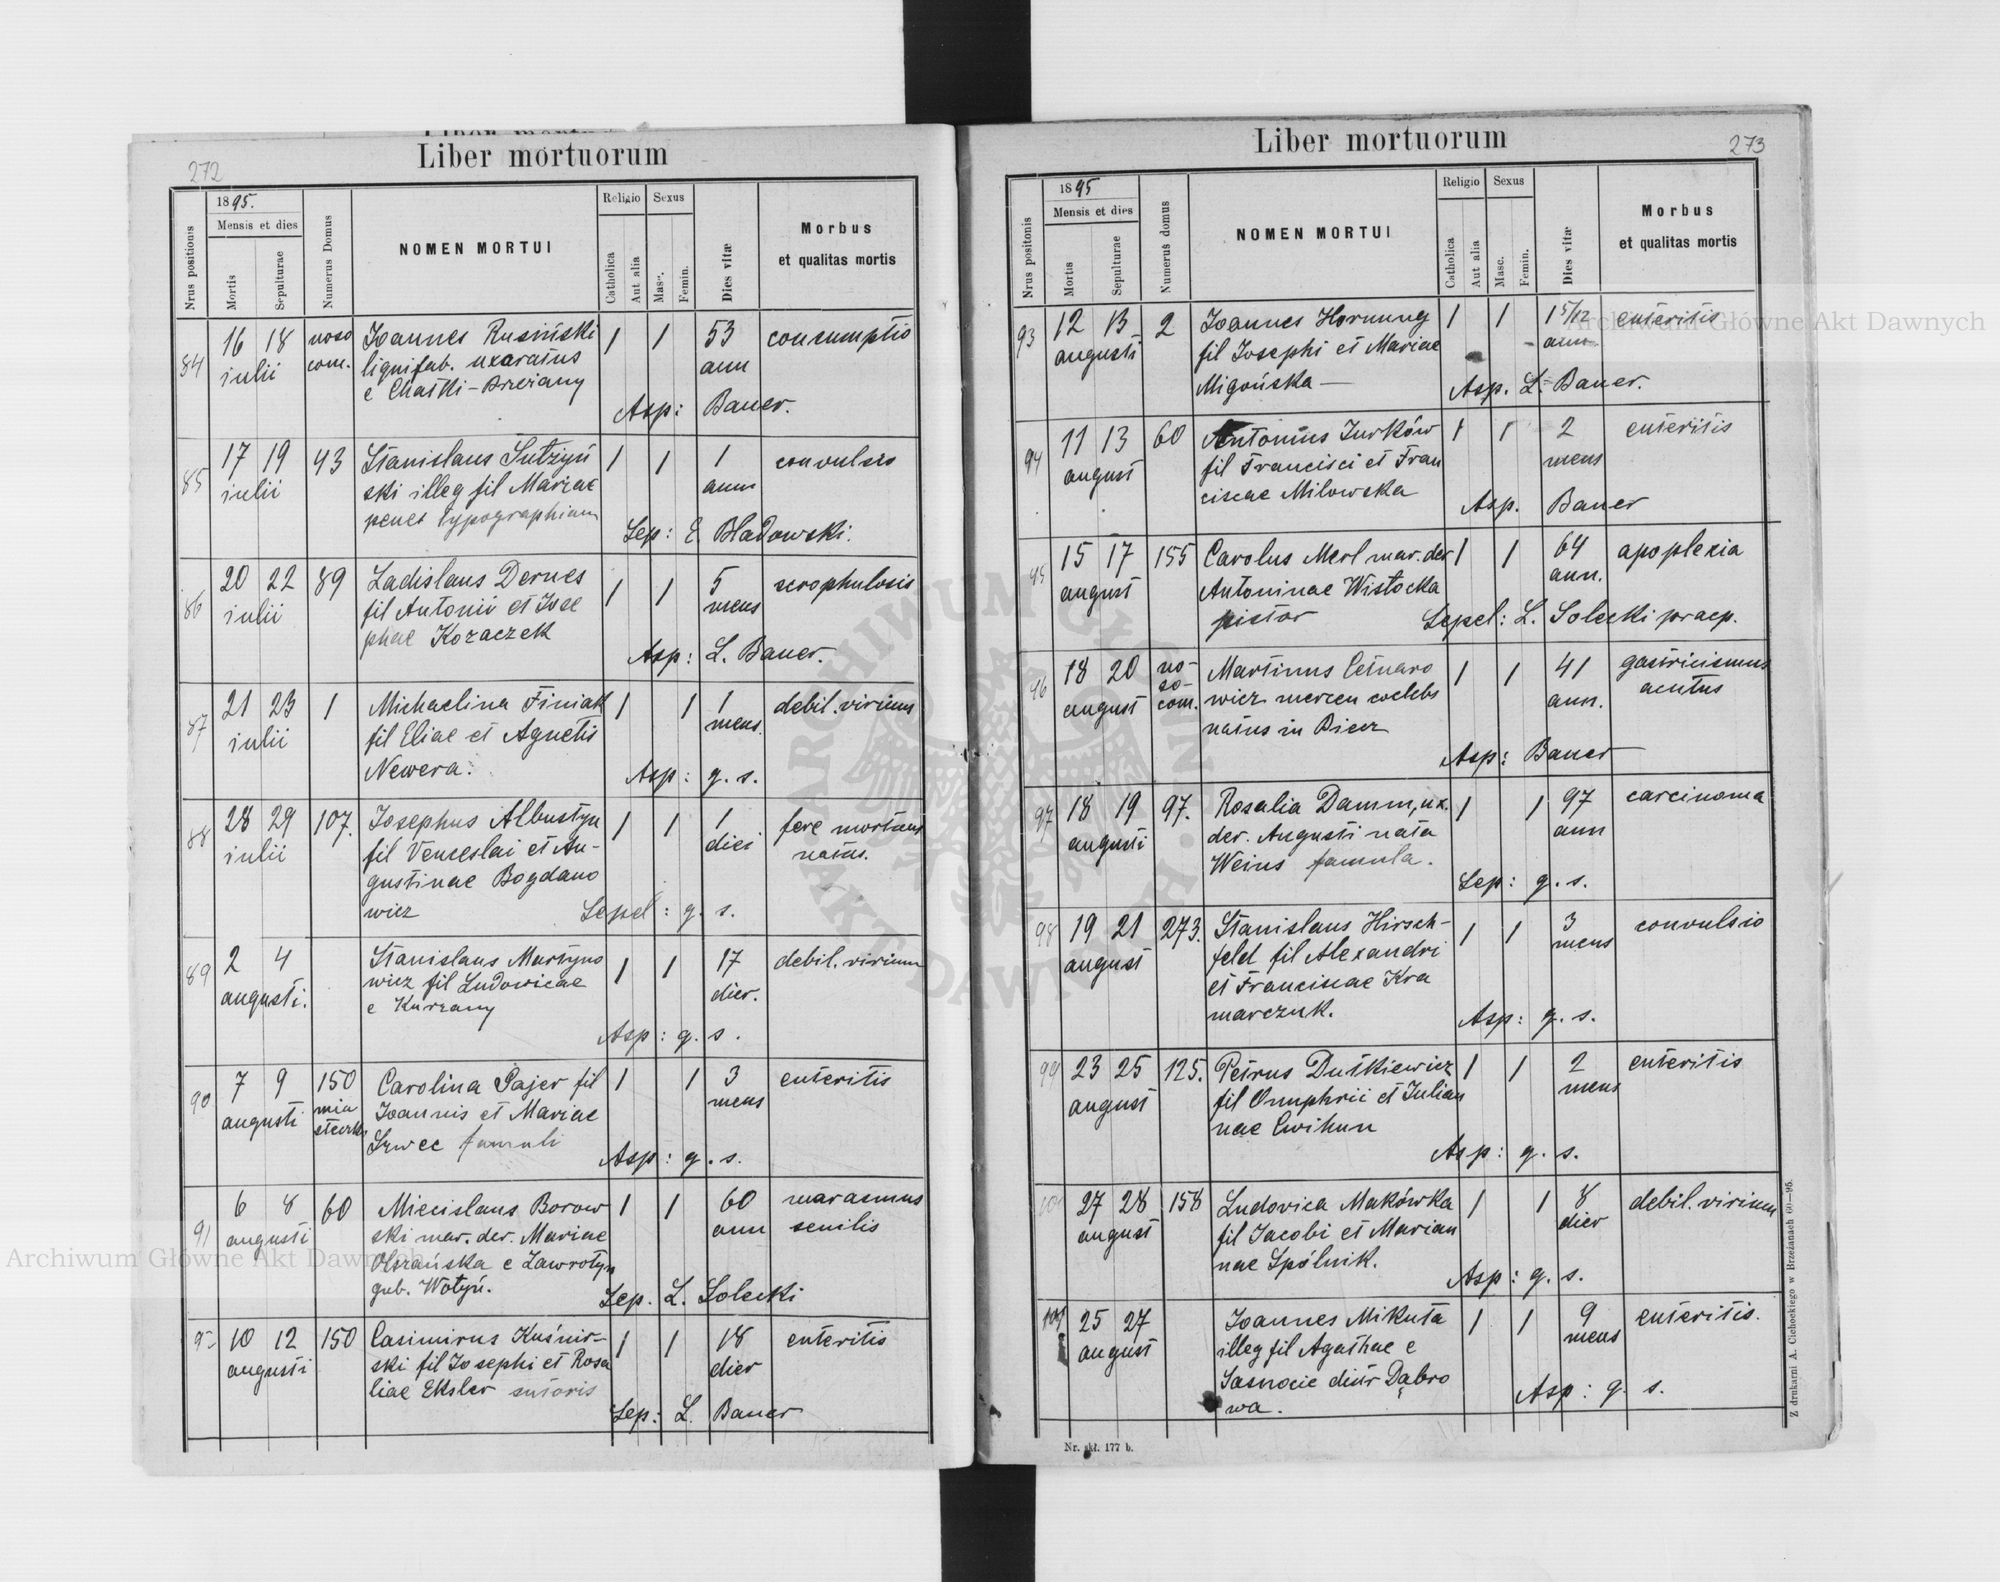 Liber mortuorum
272
Nrus positionis
1895.
Mensis et dies
Mortis
Sepulturae
Numerus Domus
NOMEN MORTUI
Religio
Catholica
Aut alia
Sexus
Masc.
Femin.
Dies vitæ
Morbus
et qualitas mortis
84 16 18 noso Joannes Rusiński 1 1 53 consumptio
iulii com. lignifab. uxoratus ann
e Chatki - Brzeżany
Asp: Bauer.
85 17 19 43 Stanislaus 1 1 1 convulsio
iulii ski illeg fil Mariae ann
penes typographiam
Sep: E. Bładowski.
86 20 22 89 Ladislaus Dernes 1 1 5 scrophulosis
iulii fil Antonii et Jose mens
phae Kozaczek
Asp: L. Bauer.
87 21 23 1 Michaelina Finiak 1 1 1 debil. virium
iulii fil Eliae et Agnetis mens.
Newera.
Asp: g. s.
88 28 29 107. Josephus Albustyn 1 1 1 fere mortuus
iulii fil Venceslai et Au- diei natus.
gustinae Bogdano
wicz Sepel: g. s.
89 2 4 Stanislaus Martyno 1 1 17 debil. virium
augusti. wicz fil Ludovicae dier.
e Kurzany
Asp: g. s.
90 7 9 150 Carolina Pajer fil 1 1 3 enteritis
augusti mia Joannis et Mariae mens
steczko Szwec famuli
Asp: g. s.
91 6 8 60 Miecislaus Borow 1 1 60 marasmus
augusti ski mar. der. Mariae ann senilis
Olszańska e Zawrotyn
gub. Wołyń.
Sep. L. Solecki
92 10 12 150 Casimirus Kuśnir- 1 1 18 enteritis
augusti ski fil Josephi et Rosa dier
liae Eksler sutoris
Sep: L. Bauer
Liber mortuorum
273
Nrus positonis
1895
Mensis et dies
Mortis
Sepulturae
Numerus domus
NOMEN MORTUI
Religio
Catholica
Aut alia
Sexus
Masc.
Femin.
Dies vitæ
Morbus
et qualitas mortis
93 12 13 2 Joannes Hornung 1 1 1 5/12 enteritis
augusti fil Josephi et Mariae ann
Migońska —
Asp. L. Bauer.
94 11 13 60 Antonius Jurków 1 1 2 enteritis
august fil Francisci et Fran mens
ciscae Milowska
Asp. Bauer
95 15 17 155 Carolus Merl mar. der 1 1 64 apoplexia
august Antoninae Wisłocka ann.
pistor Sepel: L. Solecki praep.
96 18 20 no- Martinus Cetnaro 1 1 41 gastricismus
august so- wicz mercen coelebs ann. acutus
com. natus in Biecz
Asp: Bauer
97 18 19 97. Rosalia Damm, ux. 1 1 97 carcinoma
augusti der. Augusti nata ann
Weins famula.
Sep: g. s.
98 19 21 273. Stanislaus Hirsch- 1 1 3 convulsio
august feld fil Alexandri mens
et Franciscae Kra
marczuk.
Asp: g. s.
99 23 25 125. Petrus Dutkiewicz 1 1 2 enteritis
august fil Onuphrii et Julian mens
nae Cwihun
Asp: g. s.
100 27 28 158 Ludovica Makówka 1 1 8 debil. virium
august fil Jacobi et Marian dier
nae Spólnik.
Asp: g. s.
101 25 27 Joannes Mikuła 1 1 9 enteritis.
august illeg fil Agathae e mens
Sasnocie Dąbro
wa.
Asp: g. s.
Nr. skł. 177 b.
Z drukarni A. Cichockiego w Brzeżanach 60—95.
Archiwum Główne Akt Dawnych
Archiwum Główne Akt Dawnych
ARCHIWUM GŁÓWNE AKT DAWNYCH